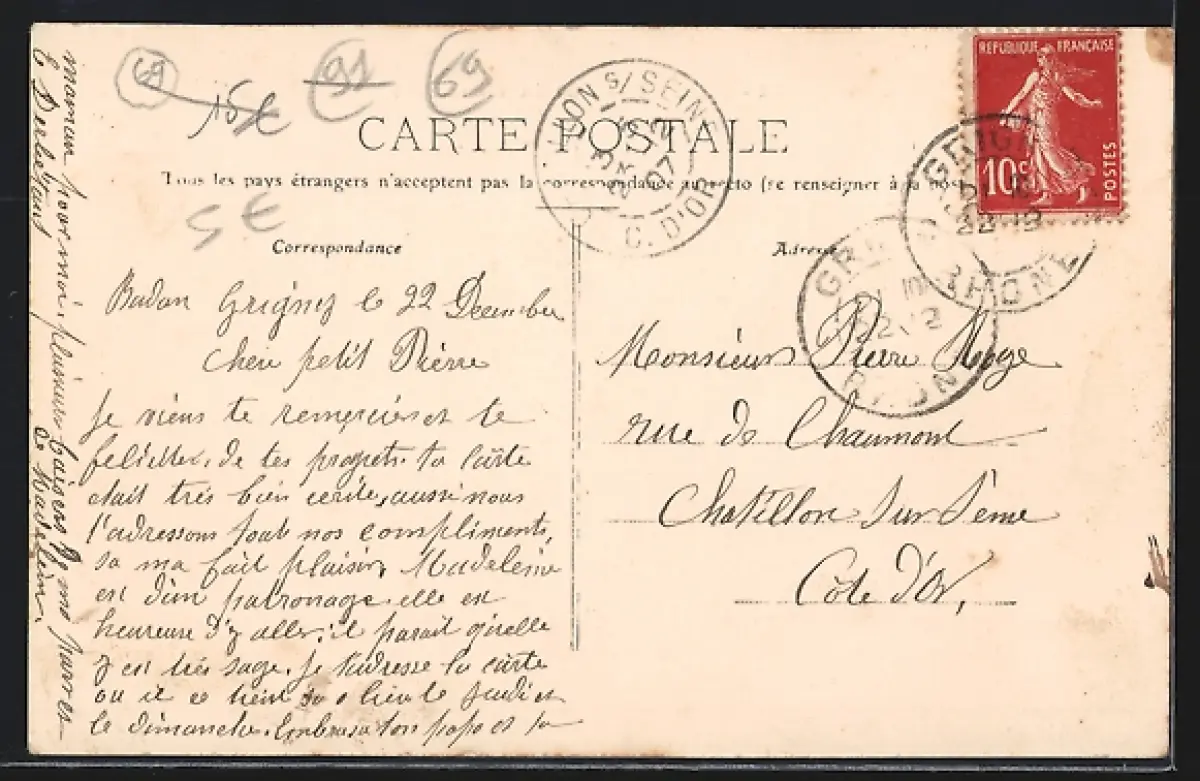 69
15€
91
69
5€
CARTE POSTALE
Tous les pays étrangers n'acceptent pas la correspondance au recto (se renseigner à la pos
Correspondance
Adresse
REPUBLIQUE FRANÇAISE
10c
POSTES
ON S/ SEINE
C. D'OR
GRIGN
RHONE
Badan Grigny le 22 Decembre
Chere petit Pièrre
Je viens te remercier et te
feliciter, de tes progrets. ta carte
etait trés bien ecrite, aussi nous
t'adressons tout nos compliments,
sa ma fait plaisir, Madeleine
est d'un patronage. elle est
heureuse d'y aller, il parait qu'elle
y est trés sage. je t'adresse la carte
ou il ce tien sa a lieu le jeudi et
le dimanche. Embrasse ton papa et ta
maman pour moi. plusieurs baisers de
Madelein.
Monsieur Pierre Roge
rue de Chaumont
Chatillon sur Seine
Côte d'Or,